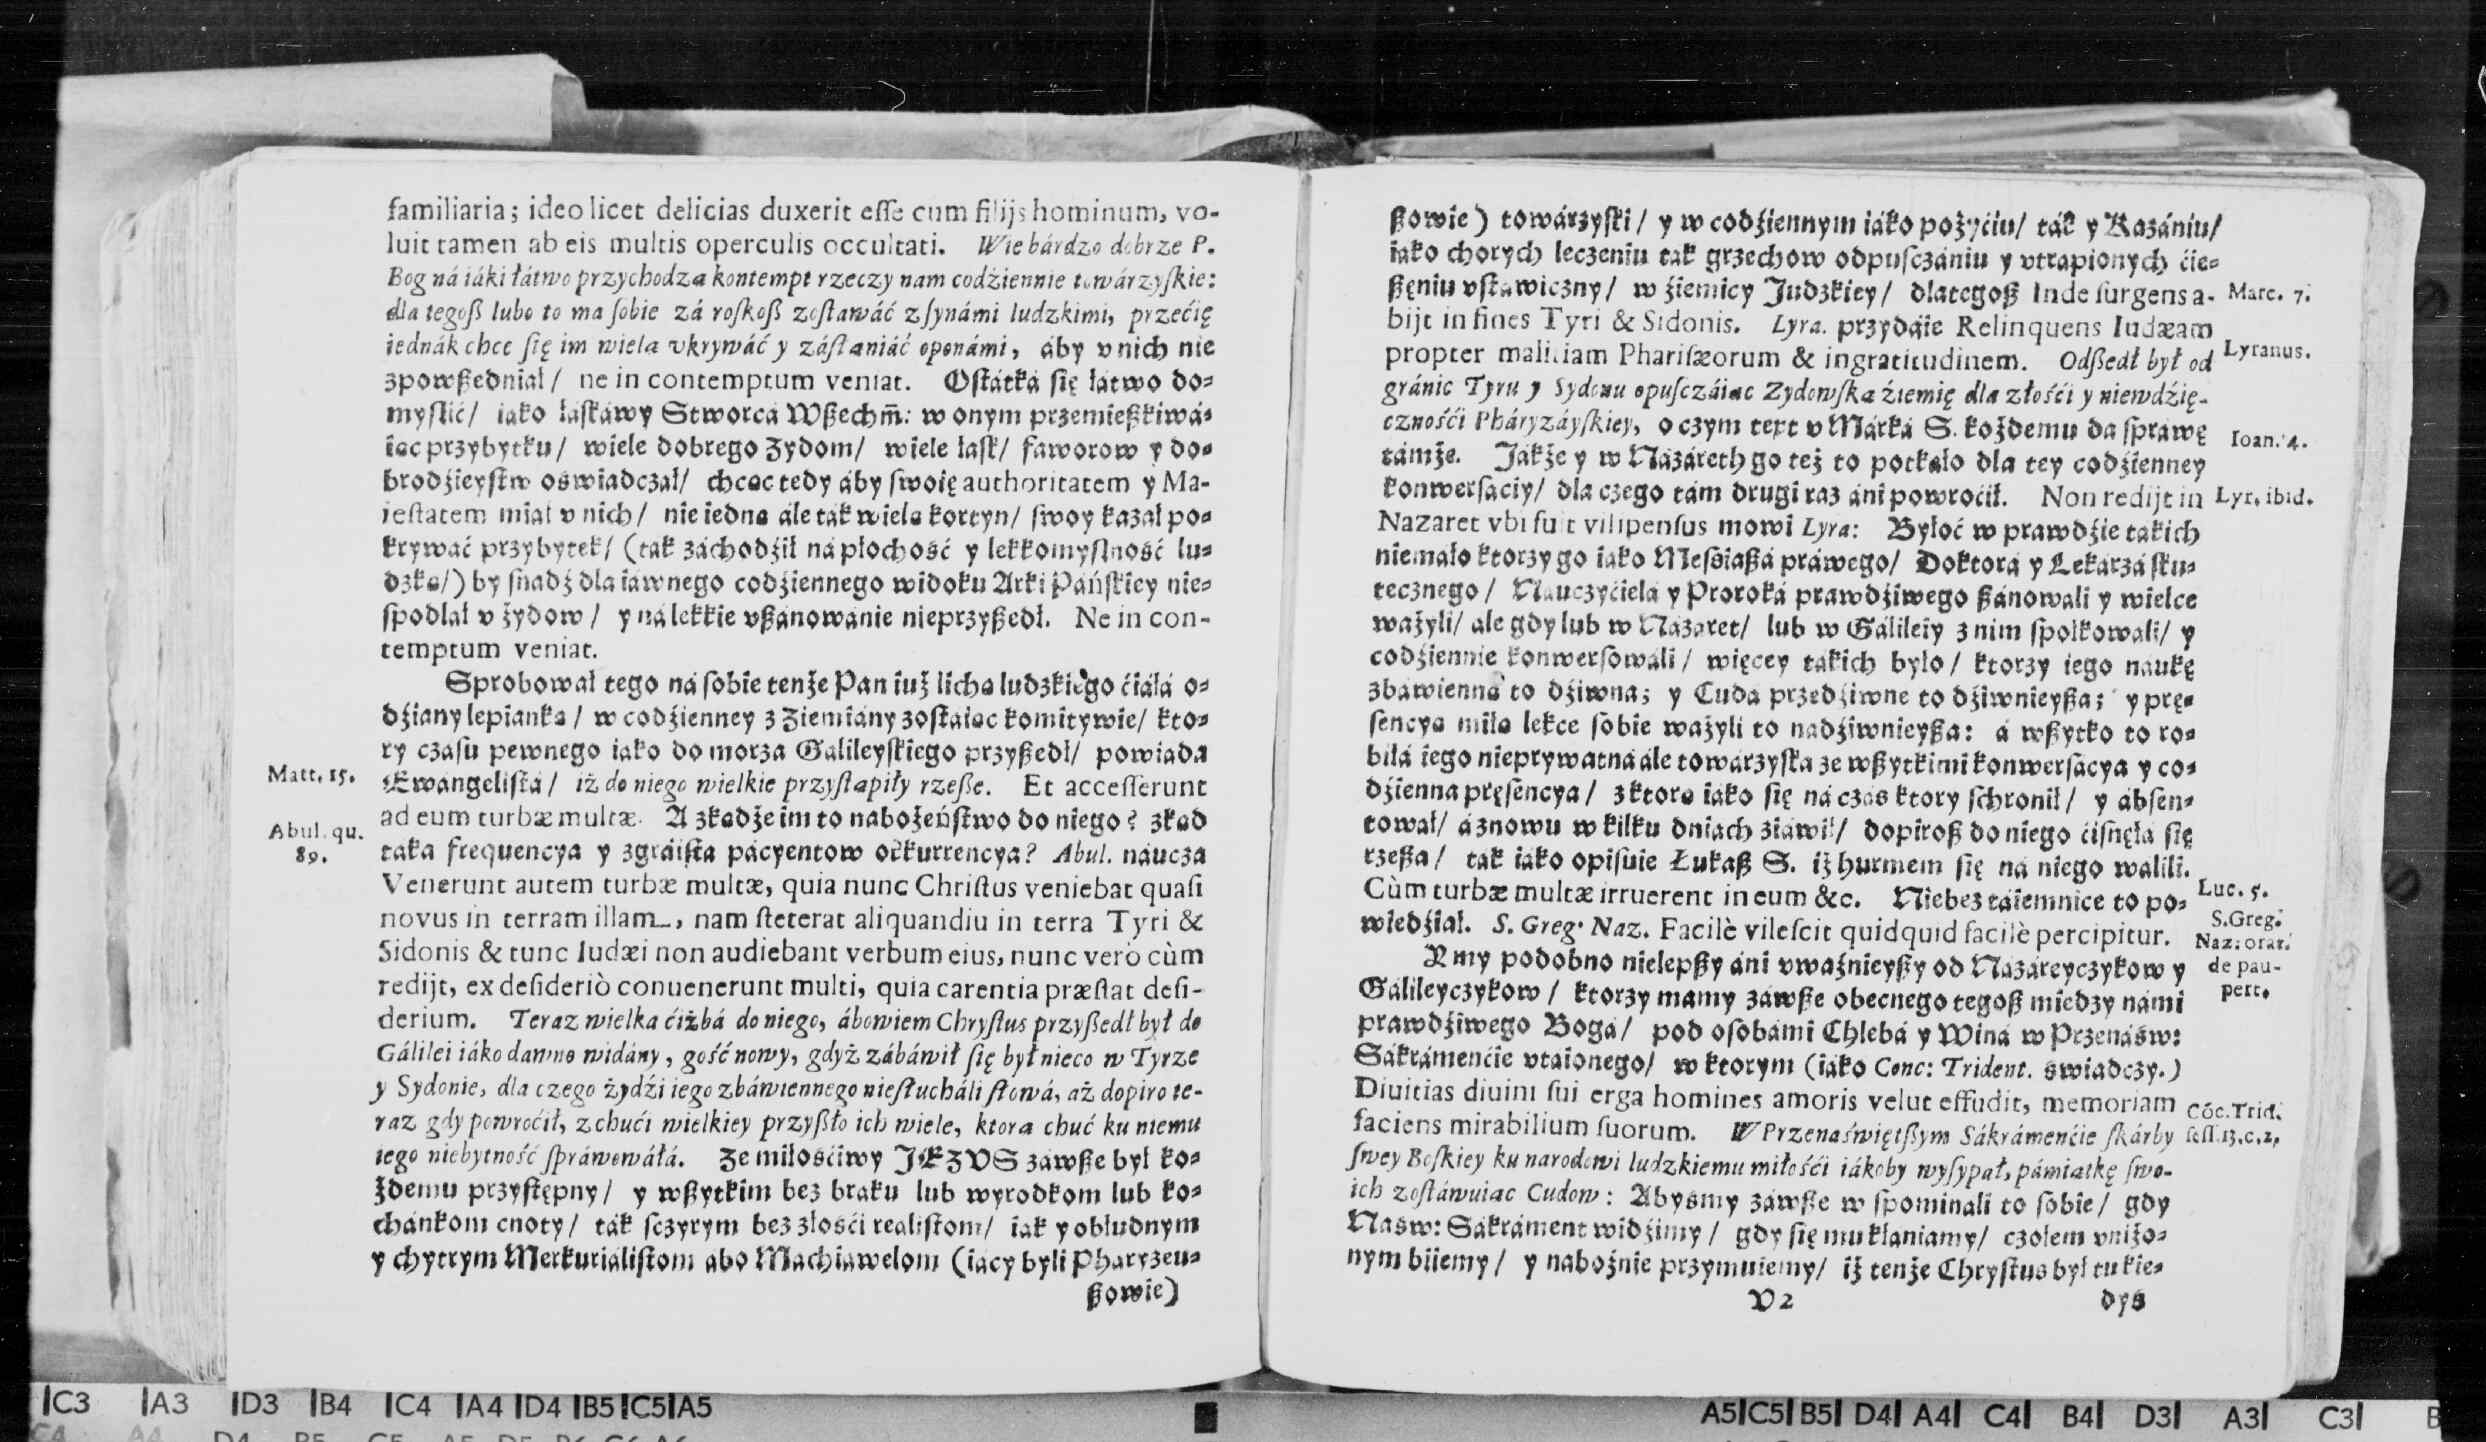 familiaria; ideo licet delicias duxerit esse cum filijs hominum, vo-
luit tamen ab eis multis operculis occultati. Wie bárdzo dobrze P.
Bog ná iáki łátwo przychodza kontempt rzeczy nam codźiennie towárzyskie:
dla tegoß lubo to ma sobie zá roskoß zostawáć z synámi ludzkimi, przećię
iednák chce się im wiela vkrywáć y zástaniáć oponámi, áby v nich nie
zpowßedniał / ne in contemptum veniat. Ostátká się łátwo do=
myslić / iáko łáskáwy Stworcá Wßechm̃: w onym przemießkiwá=
iąc przybytku / wiele dobrego Zydom / wiele łask / faworow y do=
brodźieystw oświadczał / chcąc tedy áby swoię authoritatem y Ma-
iestatem miał v nich / nie iedną ále ták wielą kortyn / swoy kazał po=
krywáć przybytek / (ták záchodźił ná płochość y lekkomyslność lu=
dzką /) by snadź dla iáwnego codźiennego widoku Arki Páńskiey nie=
spodlał v żydow / y ná lekkie vßánowánie nieprzyßedł. Ne in con-
temptum veniat.
Sprobował tego ná sobie tenże Pan iuż lichą ludzkiego ćiáłá o=
dźiany lepianką / w codźienney z Ziemiány zostáiąc komitywie / kto=
ry czásu pewnego iáko do morza Gálileyskiego przyßedł / powiáda
Ewángelistá / iż do niego wielkie przystąpiły rzeße. Et accesserunt
ad eum turbæ multæ. A zkądże im to nabożeństwo do niego? zkąd
táka frequencya y zgráista pácyentow okkurrencya? Abul. náucza
Venerunt autem turbæ multæ, quia nunc Christus veniebat quasi
novus in terram illam, nam steterat aliquandiu in terra Tyri &
Sidonis & tunc Iudæi non audiebant verbum eius, nunc verò cùm
redijt, ex desideriò conuenerunt multi, quia carentia præstat desi-
derium. Teraz wielka ćiżbá do niego, ábowiem Chrystus przyßedł był do
Gálilei iáko dawno widány, gość nowy, gdyż zábáwił się był nieco w Tyrze
y Sydonie, dla czego żydźi iego zbáwiennego niesłucháli słowá, áż dopiro te-
raz gdy powroćił, z chući wielkiey przyßło ich wiele, ktora chuć ku niemu
iego niebytność spráwowáłá. Ze miłosćiwy JEZVS záwße był ko=
żdemu przystępny / y wßytkim bez braku lub wyrodkom lub ko=
chánkom cnoty / ták sczyrym bez złośći realistom / iák y obłudnym
y chytrym Merkurialistom ábo Machiawelom (iácy byli Pháryzeu=
ßowie)
Matt. 15.
Abul. qu.
89.
ßowie) towárzyski / y w codźiennym iáko pożyćiu / ták y Kazániu /
iáko chorych leczeniu ták grzechow odpusczániu y vtrapionych ćie=
ßęniu vstáwiczny / w źiemicy Judzkiey / dlategoß Inde surgens a-
bijt in fines Tyri & Sidonis. Lyra. przydáie Relinquens Iudæam
propter malitiam Pharisæorum & ingratitudinem. Odßedł był od
gránic Tyru y Sydonu opusczáiąc Zydowską źiemię dla złośći y niewdźię-
cznośći Pháryzáyskiey, o czym text v Márká S. kożdemu da spráwę
támże. Jákże y w Názáreth go też to potkáło dla tey codźienney
konwersáciy / dla czego tám drugi raz áni powroćił. Non redijt in
Nazaret vbi fuit vilipensus mowi Lyra: Byłoć w prawdźie tákich
niemáło ktorzy go iáko Messiaßá práwego / Doktorá y Lekárzá sku=
tecznego / Náuczyćielá y Proroká prawdźiwego ßánowáli y wielce
ważyli / ale gdy lub w Názaret / lub w Gálileiy z nim społkowali / y
codźiennie konwersowáli / więcey tákich było / ktorzy iego náukę
zbáwienną to dźiwna; y Cudá przedźiwne to dźiwnieyßa; y prę=
sencyą miłą lekce sobie ważyli to nadźiwnieyßa: á wßytko to ro=
biłá iego nieprywatna ále towárzyska ze wßytkimi konwersácya y co=
dźienna pręsencya / z ktorą iáko się ná czás ktory schronił / y ábsen=
tował / á znowu w kilku dniách ziáwił / dopiroß do niego ćisnęłá się
rzeßa / ták iáko opisuie Łukaß S. iż hurmem się ná niego walili.
Cùm turbæ multæ irruerent in eum &c. Niebez táiemnice to po=
wiedźiał. S. Greg. Naz. Facilè vilescit quidquid facilè percipitur.
Y my podobno nielepßy áni vważnieyßy od Názáreyczykow y
Gálileyczykow / ktorzy mamy záwße obecnego tegoß miedzy námi
prawdźiwego Bogá / pod osobámi Chlebá y Winá w Przenaśw:
Sákrámenćie vtáionego / w ktorym (iáko Conc: Trident. świádczy.)
Diuitias diuini sui erga homines amoris velut effudit, memoriam
faciens mirabilium suorum. W Przenaświętßym Sákrámenćie skárby
swey Boskiey ku narodowi ludzkiemu miłośći iákoby wysypał, pámiątkę swo-
ich zostáwuiąc Cudow: Abyśmy záwße w spomináli to sobie / gdy
Naśw: Sákráment widźimy / gdy się mu kłániamy / czołem vniżo=
nym biiemy / y nabożnie przymuiemy / iż tenże Chrystus był tu kie=
V 2
dyś
Marc. 7.
Lyranus.
Ioan. 4.
Lyr. ibid.
Luc. 5.
S. Greg.
Naz: orat.
de pau-
pert.
Cóc. Trid.
sess. 13. c. 2.
C3 A3 D3 B4 C4 A4 D4 B5 C5 A5
A5 C5 B5 D4 A4 C4 B4 D3 A3 C3 B